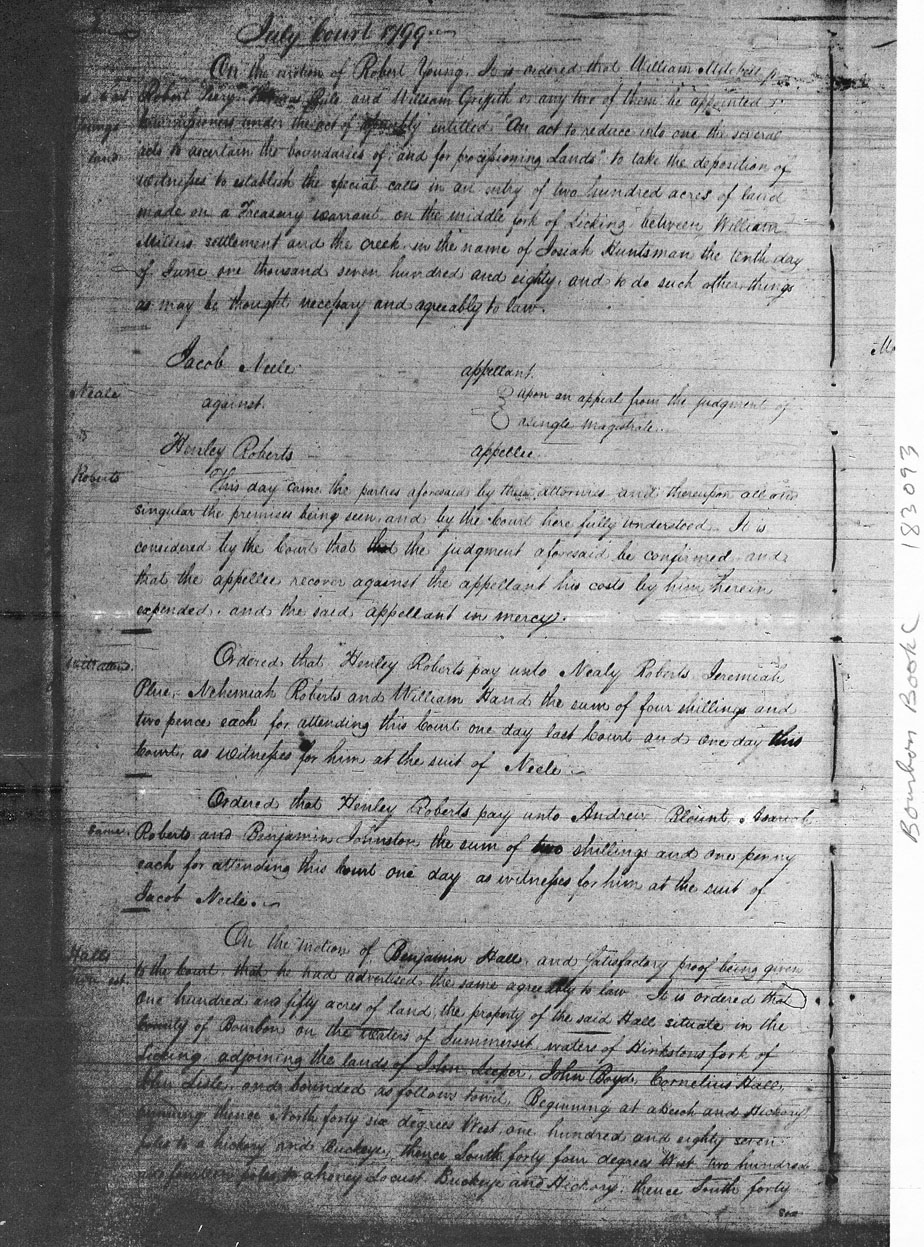 July Court 1799
On the motion of Robert Young. It is ordered that William Mitchell
Robert Terry. Thomas Rule and William Griffith or any two of them be appointed
Commissioners under the act of assembly entitled "An act to reduce into one the several
Youngs
land
acts to ascertain the boundaries of, and for processioning Lands" to take the deposition of
witnesses to establish the special calls in an entry of two hundred acres of land
made on a Treasury warrant on the middle fork of Licking between William
Millers settlement and the creek in the name of Josiah Huntsman the tenth day
of June one thousand seven hundred and eighty, and to do such other things
as may be thought necessary and agreeably to law.
Jacob Neele appellant
Neale
against upon an appeal from the judgment of
a single magistrate.
Henley Roberts appellee
Roberts
This day came the parties aforesaid by their attornies and thereupon all and
singular the premises being seen and by the Court here fully understood. It is
considered by the Court that that the judgment aforesaid be confirmed and
that the appellee recover against the appellant his costs by him herein
expended. and the said appellant in mercy.
Ordered that Henley Roberts pay unto Nealy Roberts Jeremiah
Plue, Nehemiah Roberts and William Hand the sum of four shillings and
two pence each for attending this Court one day last Court and one day this
Court, as witnesses for him at the suit of Neele
Ordered that Henley Roberts pay unto Andrew Blount, Asariah
same.
Roberts and Benjamin Johnston the sum of two shillings and one penny
each for attending this court one day as witnesses for him at the suit of
Jacob Neele.
On the motion of Benjamin Hall, and Satisfactory proof being given
Halls
to the Court, that he had advertised the same agreeably to law It is ordered that
est.
one hundred and fifty acres of land, the property of the said Hall situate in the
County of Bourbon on the waters of Summerset waters of Hinkstons fork of
Licking, adjoining the lands of John Leeper, John Boyd, Cornelius Hall,
John Lisle, and bounded as follows towit, Beginning at a Beech and Hickory
running thence North forty six degrees West one hundred and eighty seven
poles to a hickory and Buckeye, thence South forty four degrees West two hundred
poles to a honey locust Buckeye and Hickory. thence South forty
six
Bourbon Book C 183093